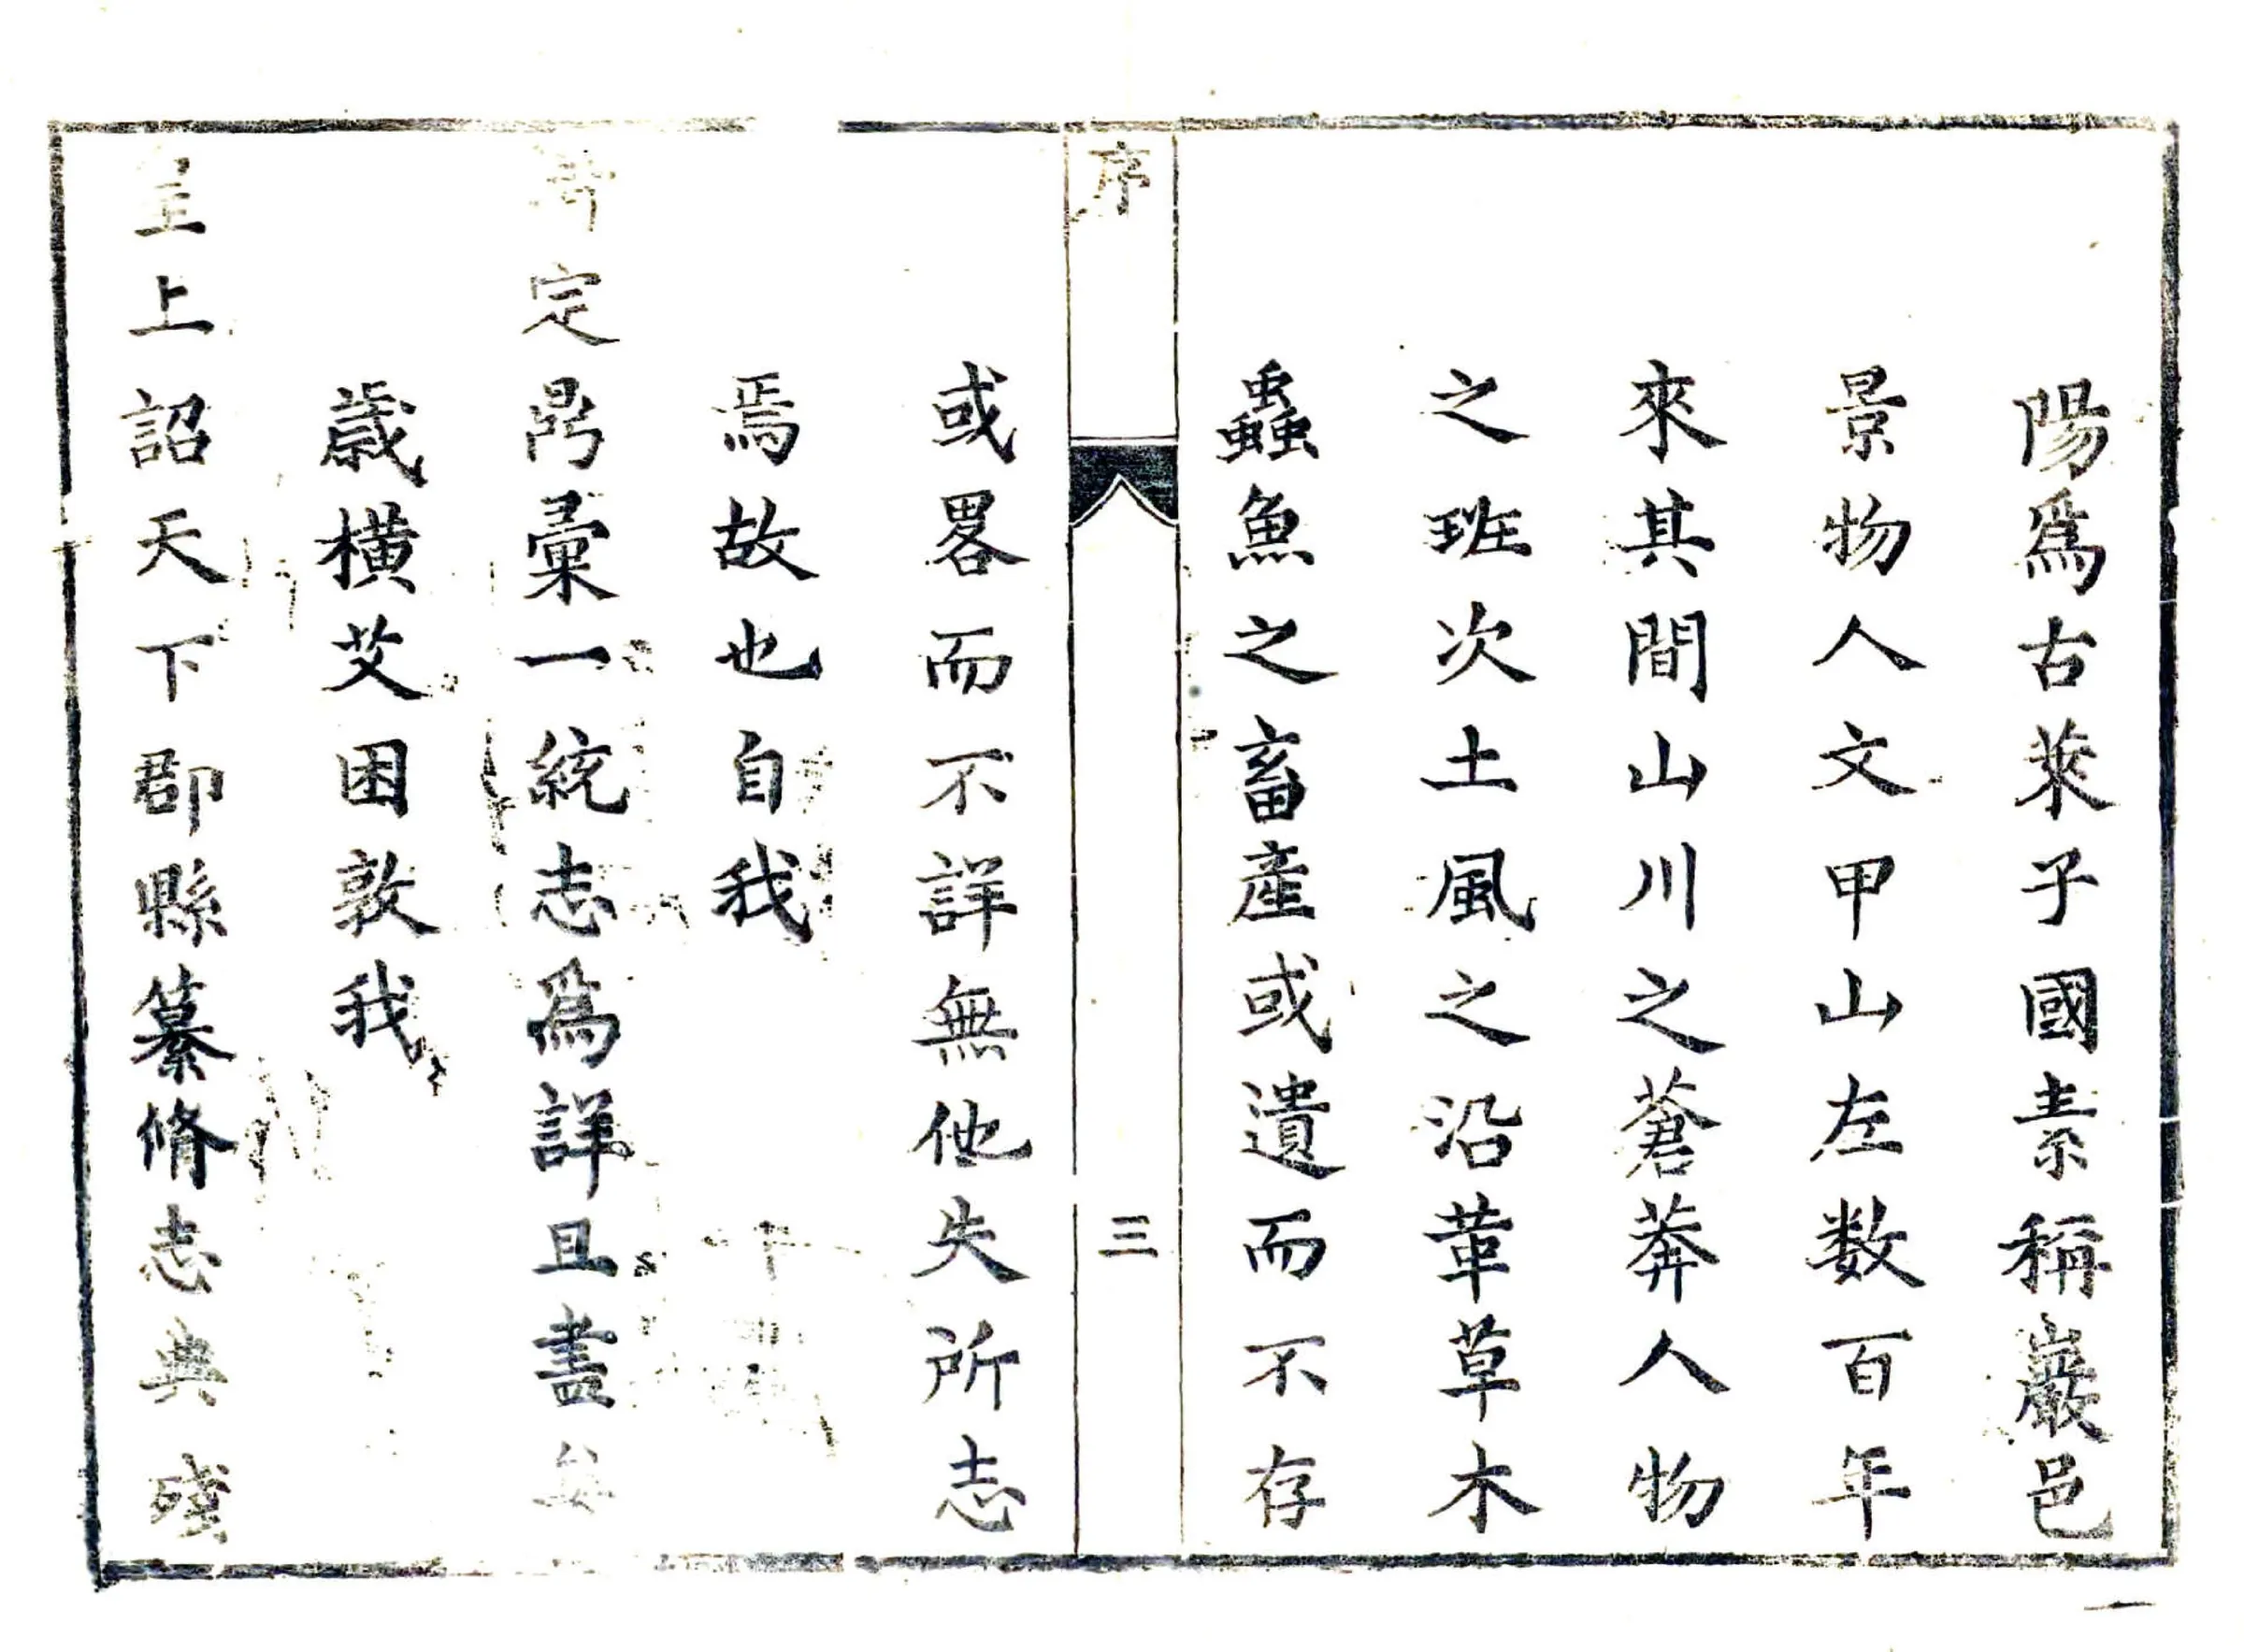 陽爲古萊子國素稱巖邑
景物人文甲山左数百年
來其間山川之蒼莽人物
之班次土風之沿革草木
蟲魚之畜產或遺而不存
序
三
或畧而不詳無他失所志
焉故也自我
定鼎彙一統志爲詳且盡
歲橫艾困敦我
上詔天下郡縣纂脩志典殘